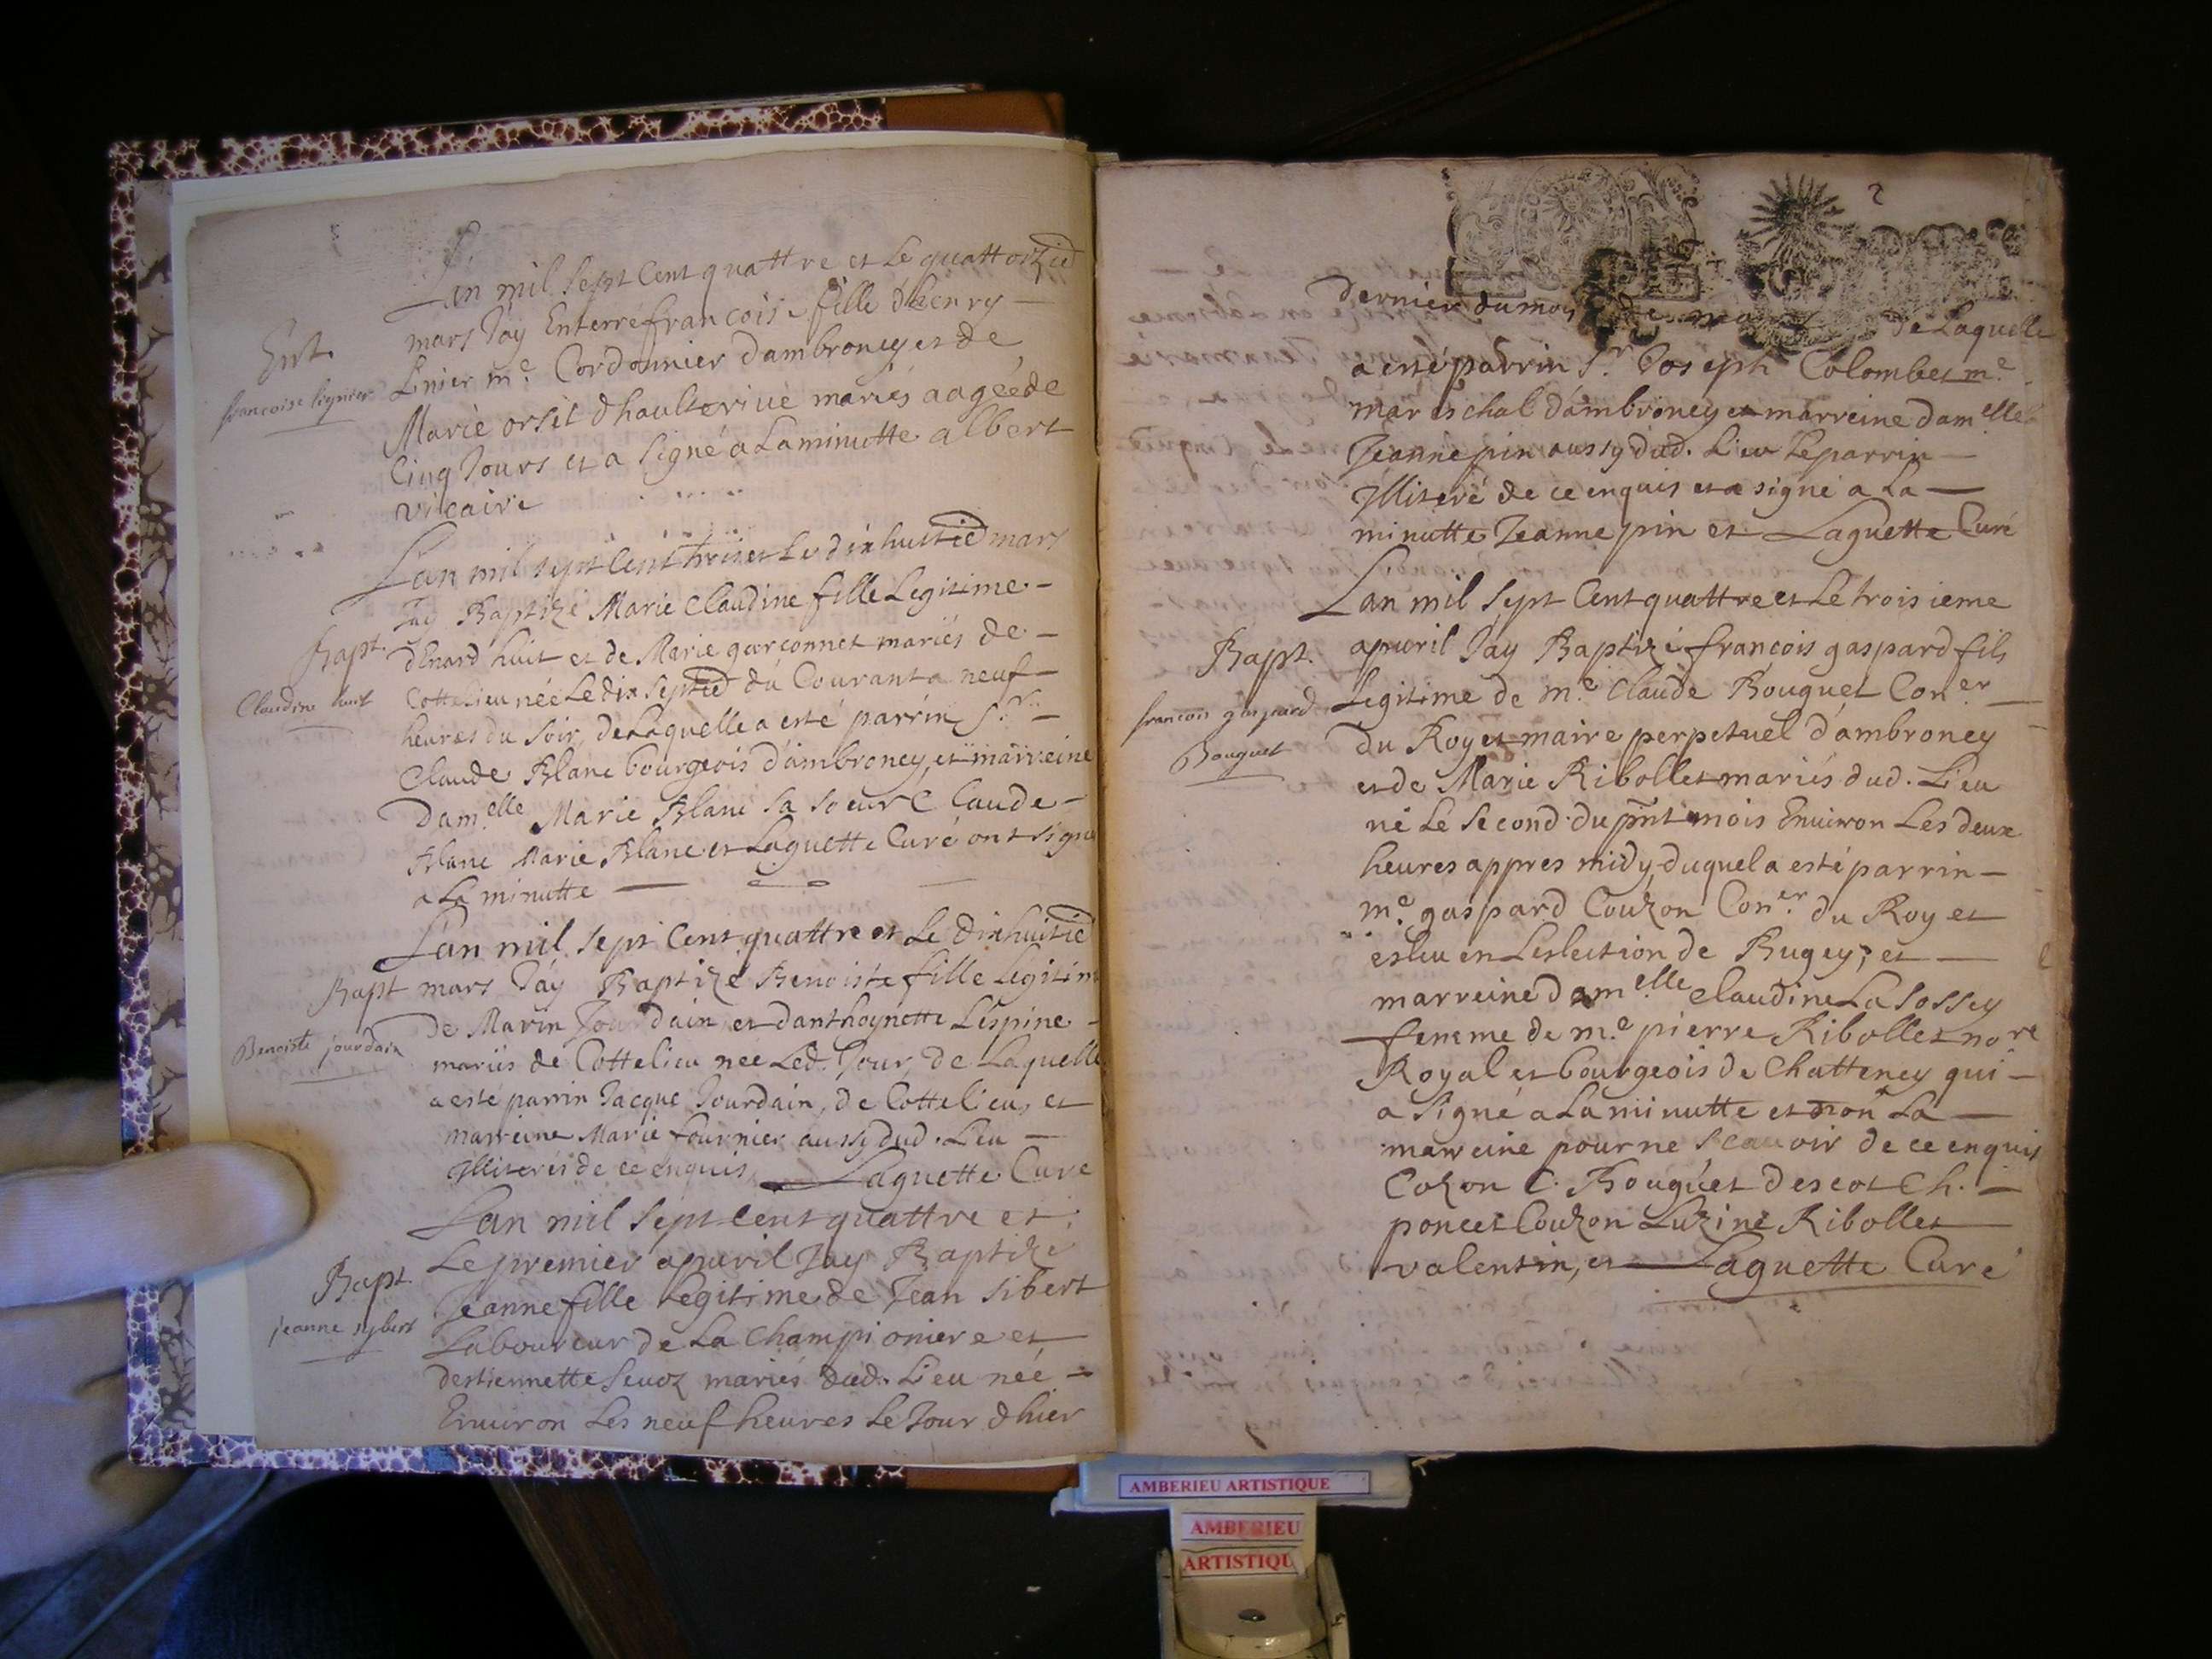 Lan mil Sept Cent quattre et Le quattorzie
Ent.
francoise lignier
mars Jay Enterré francoise fille dhenry
Linier me. Cordonnier dambroney et de
Marie orsit dhaulterive mariés aageé de
Cinq Jours et a Signé a La minutte albert
vicaire
Lan mil sept Cent trois et Le dix huitie mars
Bapt.
Claudine huit
Jay Baptizé Marie Claudine fille Legitime
dEnard huit et de Marie garconnet mariés de
Cottelieu née Le dix septie du Courant a neuf
heures du Soir, de Laquelle a esté parrin Sr.
Claude Blanc bourgeois d'ambroney, et marreine
Damelle Marie Blanc Sa Soeur Claude
Blanc Marie Blanc et Laguette Curé ont signé
a La minutte
Lan mil Sept Cent quattre et Le dixhuitie
Bapt
Benoiste jourdain
mars Jay Baptizé Benoiste fille Legitim
de Marin Jourdain et danthoynette Lespine
mariés de Cottelieu née Led. Jour, de Laquelle
a esté parrin Jacque Jourdain, de Cottelieu, et
marreine Marie fournier aussy dud. Lieu
Illiterés de ce enquis Laguette Curé
Lan mil Sept Cent quattre et
Bapt.
jeanne sybert
Le premier apvril Jay Baptizé
Jeanne fille Legitime de Jean Sibert
Laboureur de La Championiere et
destiennette Sevoz mariés dud. Lieu née
Environ Les neuf heures Le Jour dhier
2
dernier du mois de mars de Laquelle
a esté parrin Sr. Joseph Colombet me.
mareschal d'ambroney et marreine damelle
Jeanne pin aussy dud. Lieu Le parrin
Illiteré de ce enquis et a signé a La
minutte Jeanne pin et Laguette Curé
Lan mil Sept Cent quattre et Le troisieme
Bapt.
francois gaspard
Bouguet
apvril Jay Baptizé françois gaspard fils
Legitime de me. Claude Bouguet Coner.
du Roy et maire perpetuel d'ambroney
et de Marie Ribollet mariés dud. Lieu
né Le Second du pnt mois Environ Les deux
heures appres midy duquel a esté parrin
me. gaspard Couzon Coner. du Roy et
esleu en Leslection de Bugey, et
marreine damelle Claudine La Sossey
femme de me. pierre Ribollet nore
Royal et bourgeois de Chatteney qui
a Signé a La minutte et non La
marreine pour ne Scauoir de ce enquis
Cozon C. Bouguet descot Ch.
poncet Couzon Luzine Ribollet
valentin, et Laguette Curé
AMBERIEU ARTISTIQUE
AMBERIEU
ARTISTIQU